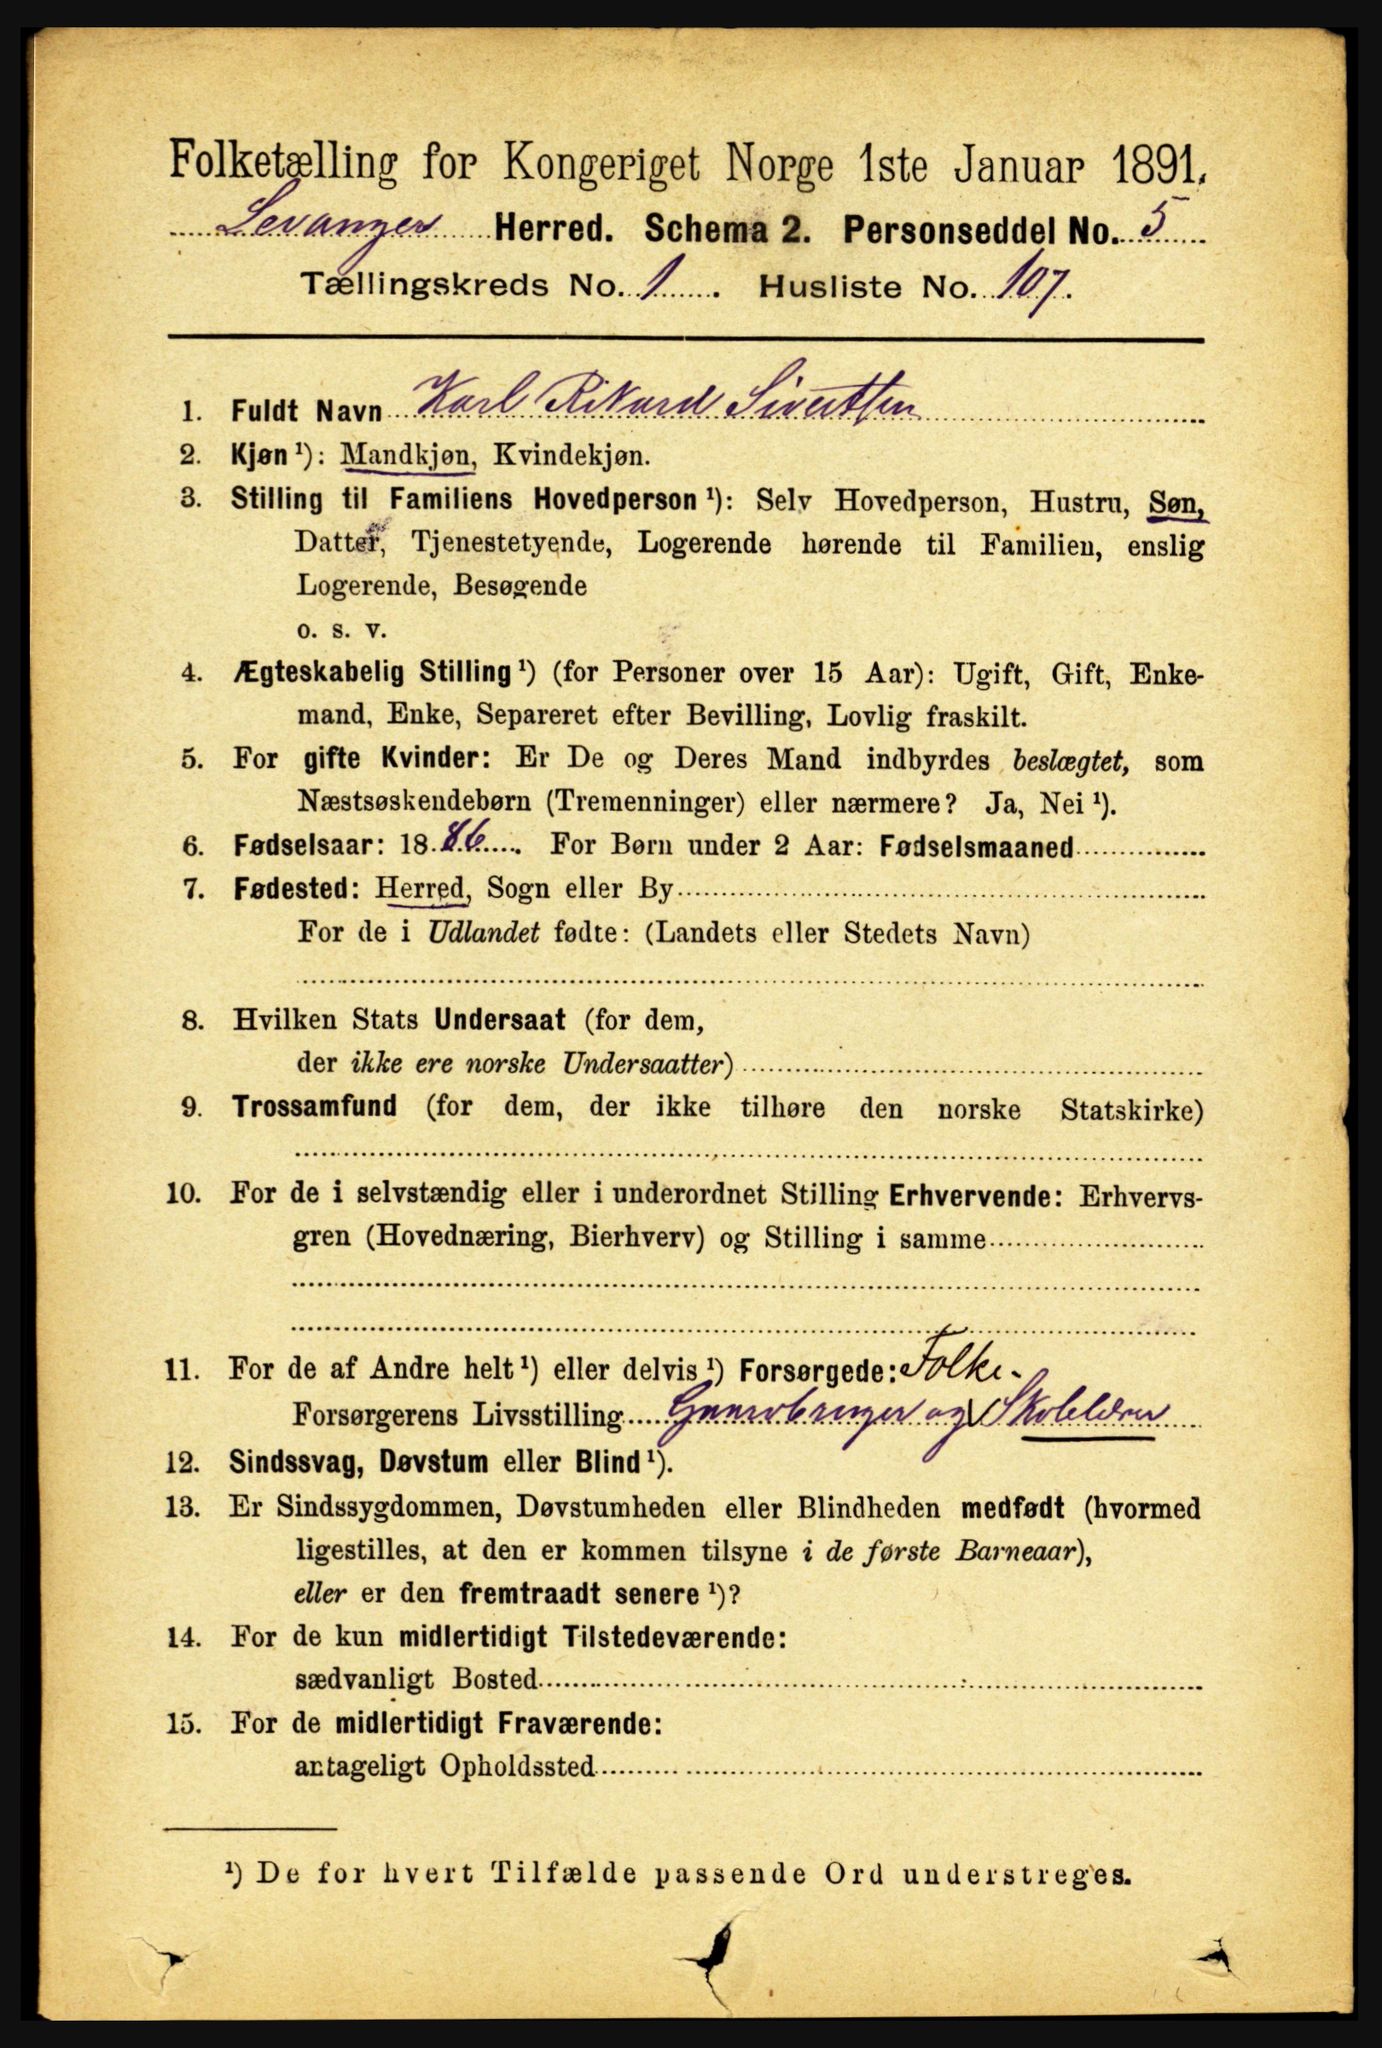 Folketælling for Kongeriget Norge 1ste Januar 1891.
Levanger Herred. Schema 2. Personseddel No. 5
Tællingskreds No. 1. Husliste No. 107.
1. Fuldt Navn Karl Rikard Sivertsen
2. Kjøn ¹): Mandkjøn, Kvindekjøn.
3. Stilling til Familiens Hovedperson ¹): Selv Hovedperson, Hustru, Søn,
Datter, Tjenestetyende, Logerende hørende til Familien, enslig
Logerende, Besøgende
o. s. v.
4. Ægteskabelig Stilling ¹) (for Personer over 15 Aar): Ugift, Gift, Enke-
mand, Enke, Separeret efter Bevilling, Lovlig fraskilt.
5. For gifte Kvinder: Er De og Deres Mand indbyrdes beslægtet, som
Næstsøskendebørn (Tremenninger) eller nærmere? Ja, Nei ¹).
6. Fødselsaar: 1886. For Børn under 2 Aar: Fødselsmaaned
7. Fødested: Herred, Sogn eller By
For de i Udlandet fødte: (Landets eller Stedets Navn)
8. Hvilken Stats Undersaat (for dem,
der ikke ere norske Undersaatter)
9. Trossamfund (for dem, der ikke tilhøre den norske Statskirke)
10. For de i selvstændig eller i underordnet Stilling Erhvervende: Erhvervs-
gren (Hovednæring, Bierhverv) og Stilling i samme
11. For de af Andre helt ¹) eller delvis ¹) Forsørgede: Folke-
Forsørgerens Livsstilling og Skolelærer
12. Sindssvag, Døvstum eller Blind ¹).
13. Er Sindssygdommen, Døvstumheden eller Blindheden medfødt (hvormed
ligestilles, at den er kommen tilsyne i de første Barneaar),
eller er den fremtraadt senere ¹)?
14. For de kun midlertidigt Tilstedeværende:
sædvanligt Bosted
15. For de midlertidigt Fraværende:
antageligt Opholdssted
¹) De for hvert Tilfælde passende Ord understreges.